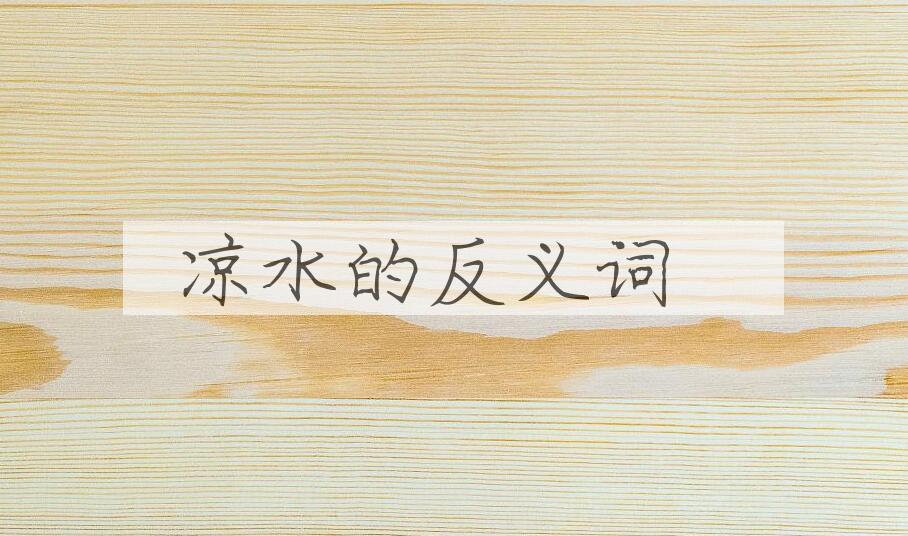 凉水的反义词